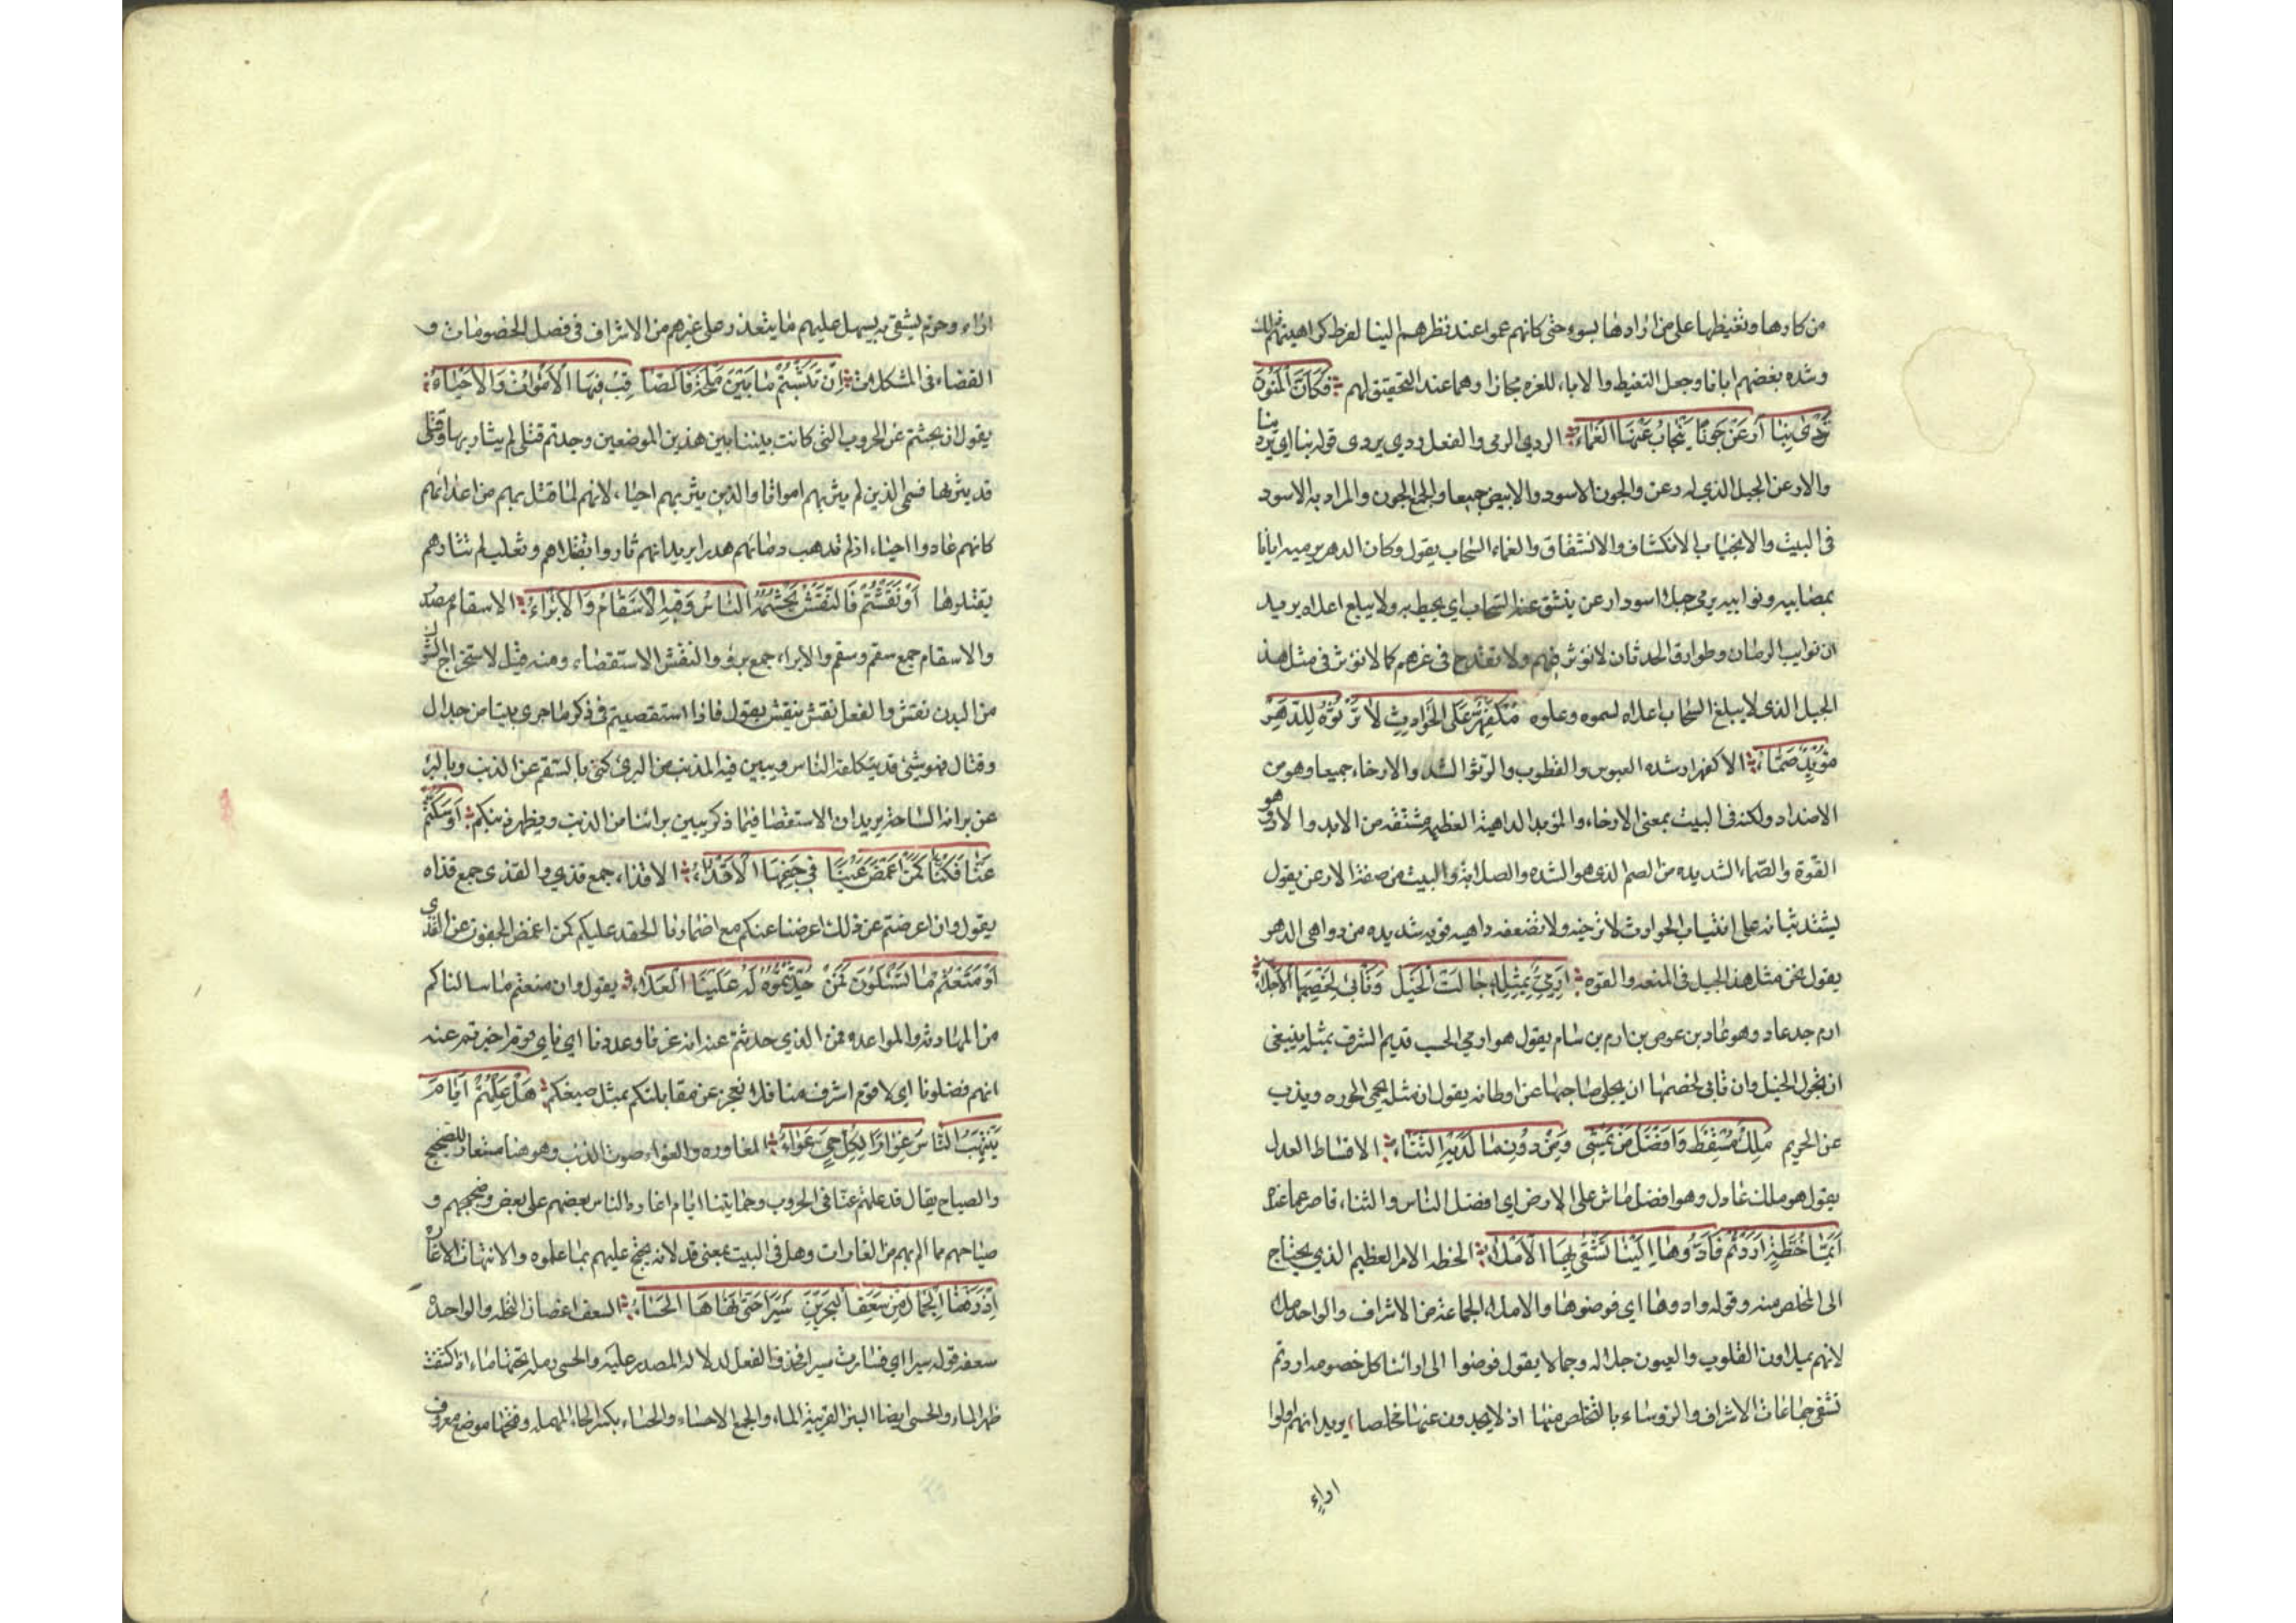 من كارها وتغيظها على من ارادها بسوء حتى كانهم عموا عند نظرهم الينا لفرط كراهيتهم ذلك
وشده بغضهم ايانا وجعل التغيط والاباء للعزه مجازا وهما عند التحقيق لهم فَكَأَنَّ الْمَنُونَ
تَرْدِى بِنَا اَرْعَنَ جَوْنًا يَنْجَابُ عَنْهَا الغَمَاءُ الردي الرمي والفعل ردي يردى قوله بنا اي تردينا
والارعن الجبل الذي له رعن والجون الاسود والابيض جميعا والجمع الجون والمراد به الاسود
فى البيت والانجياب الانكشاف والانشقاق والغماء السحاب يقول وكان الدهر برميه ايانا
بمصايبه ونوايبه يرمى جبلا اسود ارعن ينشق عنه السحاب اي يحيط به ولا يبلغ اعلاه يريد
ان نوايب الزمان وطوارق الحدثان لا نوثر فيهم ولا تقدح فى عزهم كما لا نوثر فى مثل هذ
الجبل الذى لا يبلغ السحاب اعلاه لسموه وعلوه مُكْفَهِرٌّ عَلَى الحَوَادِثِ لاَ تَرْتُوْهُ لِلدَّهْرِ
مُؤْيِدٌ صَمَّاءُ الاكفهرار شده العبوس والقطوب والرتو الشد والارخاء جميعا وهو من
الاضداد ولكنه فى البيت بمعنى الارخاء والمؤيد الداهية العظيمه مشتقه من الايد والاد وهو
القوة والصماء الشديده من الصم الذى هو الشده والصلابة والبيت من صفة الارعن يقول
يشتد ثباته على انتياب الحوادث لا ترخيه ولا تضعفه داهيه قويه شديده من دواهى الدهر
يقول نحن مثل هذ الجبل فى المنعه والقوه اِرَمِيٌّ بِمِثْلِهِ جَالَتِ الخَيْلُ وَتَأْبَى لِخَصْمِهَا الاَجْلاَءُ
ارم جد عاد وهو عاد بن عوص بن ارم بن سام يقول هو ارمي الحسب قديم الشرف بمثله ينبغى
ان تجول الخيل وان تابى لخصمها ان يجلى صاحبها عن اوطانه يقول ان مثله يحمى الحوزه ويذب
عن الحريم مَلِكٌ مُقْسِطٌ وَافْضَلُ مَنْ يَمْشِى وَمِنْ دُونِ مَا لَدَيْهِ الثَّنَاءُ الاقساط العدل
يقول هو ملك عادل وهو افضل ماش على الارض اي افضل الناس والثناء قاصر عما عنده
اَيُّمَا خُطَّةٍ اَرَدْتُمْ فَاَدُّوهَا اِلَيْنَا تَشْقَى بِهَا الاَمْلاَءُ الخطه الامر العظيم الذي يحتاج
الى المخلص منه وقوله وادوها اي فوضوها والاملاء الجماعة من الاشراف والواحد ملا
لانهم يملاون القلوب والعيون جلاله وجمالا يقول فوضوا الى ارائنا كل خصومه اردتم
تشقى جماعات الاشراف والروساء بالتخلص منها اذ لا يجدون عنها مخلصا يريد انهم اولوا
اراء
اراء وحزم يشقى به يسهل عليهم ما يتعذر على غيرهم من الاشراف فى فصل الخصومات و
القضاء فى المشكلات اِنْ نَبَشْتُمْ مَا بَيْنَ مِلْحَةَ فَالصَّا قِبِ فِيهَا الاَمْوَاتُ وَالاَحْيَاءُ
يقول ان بحثتم عن الحروب التى كانت بيننا بين هذين الموضعين وجدتم قتلى لم يثار بها وقتلى
قد يثر بها فسمى الذين لم يثر بهم امواتا والذين يثر بهم احياء لانهم لما قتل بهم من اعدائهم
كانهم عادوا احياء اذ لم تذهب دماءهم هدرا يريد انهم ثاروا بقتلاهم وتغلب لم تثارهم
بقتلوها اَوْ نَقَشْتُمْ فَالنَّقْشُ يَجْشَمُهُ النَّاسُ وَفِيهِ الاَسْقَامُ وَالاَبْرَاءُ الاسقام مصدر
والاسقام جمع سقم وسقم والابراء جمع برؤ والنقش الاستقصاء ومنه قيل لاستخراج الشوك
من البدن نقش والفعل نقش ينقش يقول فاذا استقصيتم فى ذكر ما جرى بيننا من جدال
وقتال فهو شئ قد يتكلفه الناس ويبين فيه المذنب من البرئ كنى بالسقم عن الذنب وبالبرء
عن برائه الساحة يريد ان الاستقصا فيما ذكر يبين براتنا من الذنب ويظهر ذنبكم اَوْ سَكَتُّمْ
عَنَّا فَكُنَّا كَمَنْ اَغْمَضَ عَيْنًا فِى جَفْنِهَا الاَقْذَاءُ الاقذاء جمع قذي والقذى جمع قذاه
يقول وان اعرضتم عن ذلك اعرضنا عنكم مع اضمارنا الحقد عليكم كمن اغمض الجفون عن القذى
اَوْ مَنَعْتُمْ مَا تُسْئَلُونَ فَمَنْ حُدِّثْتُمُوهُ لَهُ عَلَيْنَا العَلاَءُ يقول وان منعتم ما سالناكم
من المهادنه والمواعده فمن الذي حدثتم عنه انه عزنا وعددنا اي فاي قوم اخبرتم عنه
انهم فضلونا اي لا قوم اشرف منا فلا نعجز عن مقابلتكم بمثل صنيعكم هَلْ عَلِمْتُمْ اَيَّامَ
يُنْتَهَبُ النَّاسُ غِوَارًا لِكُلِّ حَيٍّ عَوَاءُ المغاوره والعواء صوت الذئب وهو هنا مستعار للضجيج
والصياح يقال قد علمتم عنا فى الحروب وحمايتنا ايام اغارة الناس بعضهم على بعض وضجيجهم و
صياحهم مما الم بهم من الغارات وهل فى البيت بمعنى قد لانه يحتج عليهم بما علموه والانتهاب الاغارة
اِذْ رَفَعْنَا الجِمَالَ مِنْ سَعَفِ البَحْرَيْنِ سَيْرًا حَتَّى نَهَاهَا الحِسَاءُ السعف اغصان النخله والواحدة
سعفه قوله سيرا اي فسارت سيرا فحذف الفعل لدلاله المصدر عليه والحسى رمله تحتها ماء اذا كشفت
ظهر الماء والحسى ايضا البئر القريبة الماء والجمع الاحساء والحساء بكسر الحاء المهمله وفتحها موضع معروف